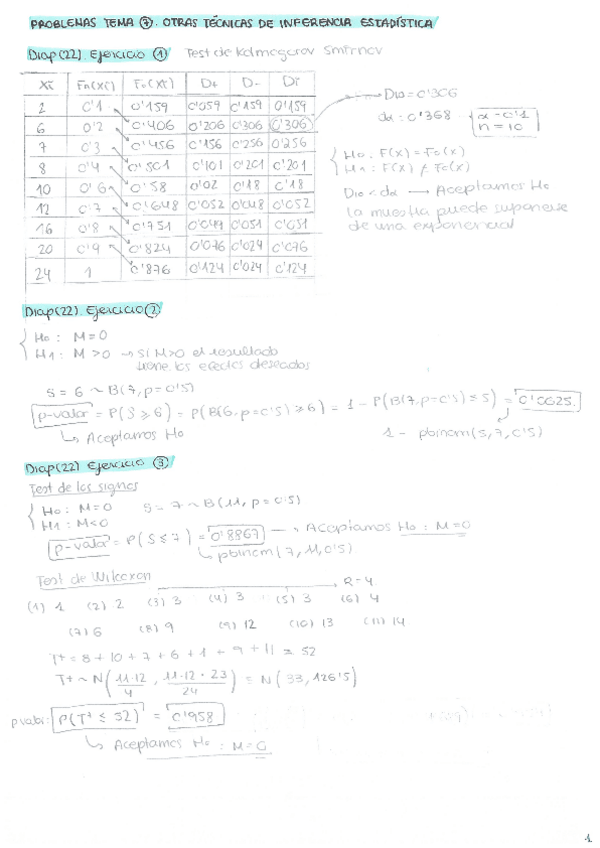 PROBLEMAS TEMA ⑦. OTRAS TÉCNICAS DE INFERENCIA ESTADÍSTICA
Diap(22). Ejercicio ① Test de Kolmogorov Smirnov
Xi Fn(Xi) Fo(Xi) D+ D- Di
2 0'1 0'159 0'059 0'159 0'159
6 0'2 0'406 0'206 0'306 0'306
7 0'3 0'456 0'156 0'256 0'256
8 0'4 0'501 0'101 0'201 0'201
10 0'6 0'58 0'02 0'18 0'18
12 0'7 0'648 0'052 0'048 0'052
16 0'8 0'751 0'049 0'051 0'051
20 0'9 0'824 0'076 0'024 0'076
24 1 0'876 0'124 0'024 0'124
D10 = 0'306
dα = 0'368 α = 0'1
n = 10
H0: F(x) = Fo(x)
H1: F(x) ≠ Fo(x)
D10 < dα → Aceptamos H0
la muestra puede suponerse
de una exponencial
Diap(22). Ejercicio ②
H0: M=0
H1: M>0 → si M>0 el resultado
tiene los efectos deseados
S = 6 ~ B(7, p=0'5)
p-valor = P(S ≥ 6) = P(B(6, p=0'5) ≥ 6) = 1 - P(B(7, p=0'5) ≤ 5) = 0'0625
↳ Aceptamos H0
1 - pbinom(5,7,0'5)
Diap(22) Ejercicio ③
Test de los signos
H0: M=0 S = 7 ~ B(11, p=0'5)
H1: M<0
p-valor = P(S ≤ 7) = 0'8867 → Aceptamos H0: M=0
↳ pbinom(7, 11, 0'5)
Test de Wilcoxon
R=4
(1) 1 (2) 2 (3) 3 (4) 3 (5) 3 (6) 4
(7) 6 (8) 9 (9) 12 (10) 13 (11) 14
T+ = 8 + 10 + 7 + 6 + 1 + 9 + 11 = 52
T+ ~ N(11·12/4, 11·12·23/24) = N(33, 126'5)
pvalor: P(T+ ≤ 52) = 0'958
↳ Aceptamos H0: M=0
1